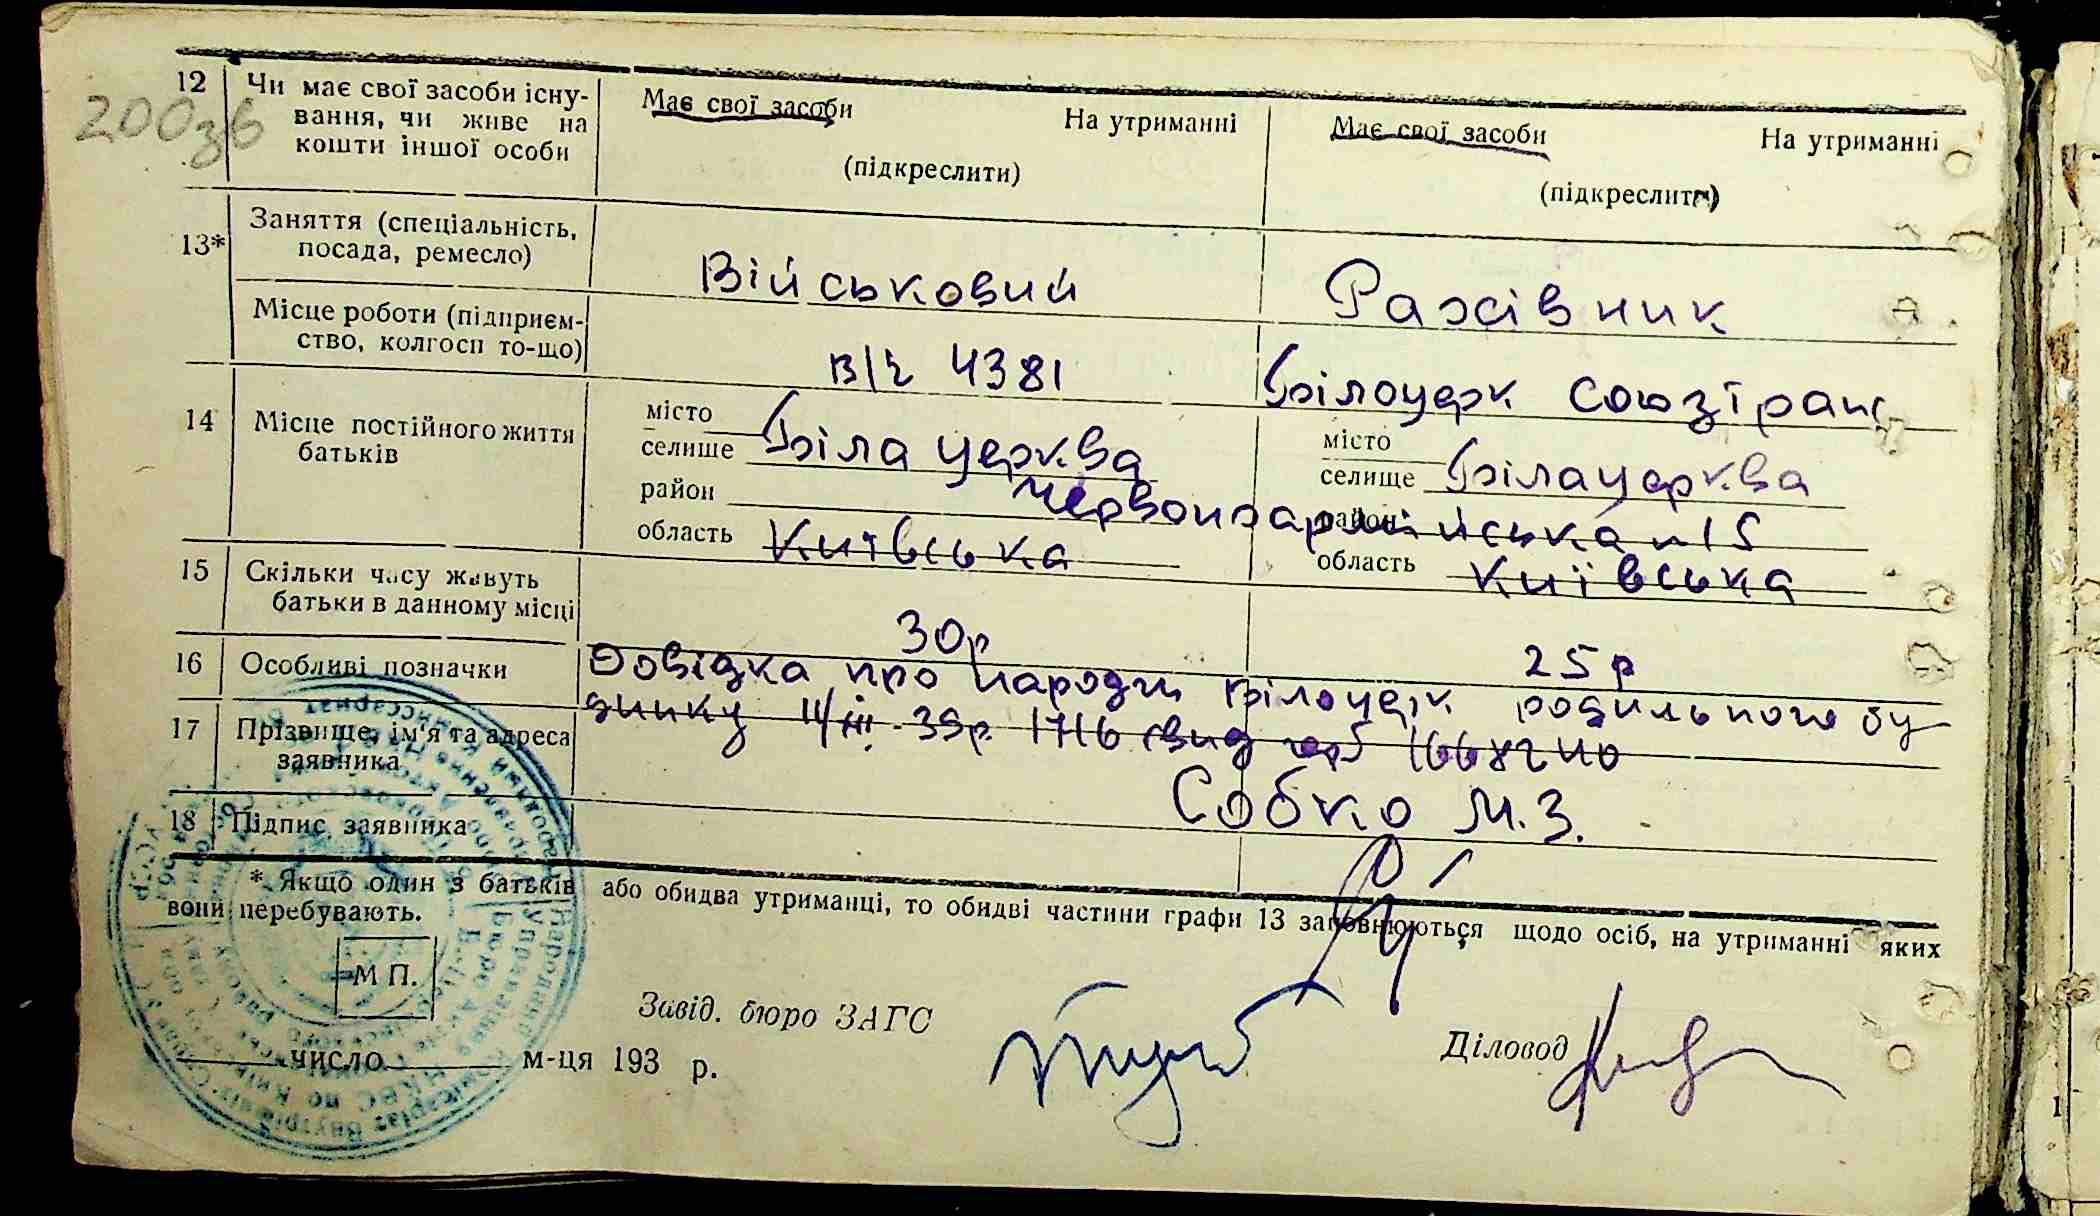 200зв
12 Чи має свої засоби існу-
вання, чи живе на
кошти іншої особи
Має свої засоби На утриманні
(підкреслити)
Має свої засоби На утриманні
(підкреслити)
13* Заняття (спеціальність,
посада, ремесло)
Військовий
Рахівник
Місце роботи (підприєм-
ство, колгосп то-що)
в/ч 4381
Білоцерк Союзтранс
14 Місце постійного життя
батьків
місто
селище Біла Церква
район
область Київська
місто
селище Біла Церква
район
область Київська
Червоноармійська n 15
15 Скільки часу живуть
батьки в данному місці
30р
25 р
16 Особливі позначки
Довідка про народж Білоцерк родильного бу
динку 11/III-39р. 1716
17 Прізвище, ім'я та адреса
заявника
Собко М.З.
18 Підпис заявника
* Якщо один з батьків або обидва утриманці, то обидві частини графи 13 заповнюються щодо осіб, на утриманні яких
вони перебувають.
М П.
Завід. бюро ЗАГС
Діловод
число м-ця 193 р.